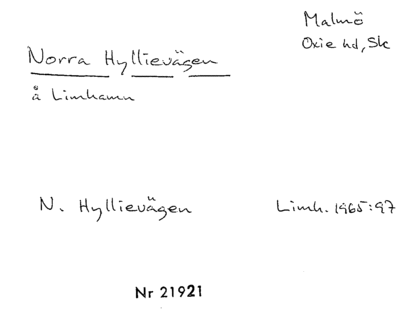 Malmö
Oxie hd, Sk
Norra Hyllievägen
å Limhamn
N. Hyllievägen Limh. 1965:97
Nr 21921